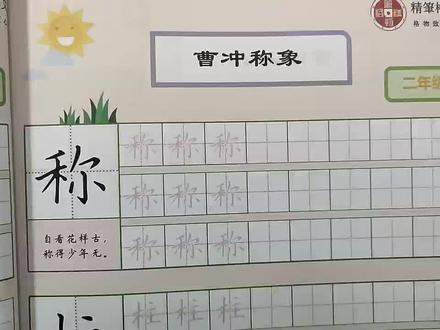 精筆
格物
曹冲称象
二年级
称 称 称 称
称 称 称
自看花样古，
称得少年无。
称 称 称
柱 柱 柱